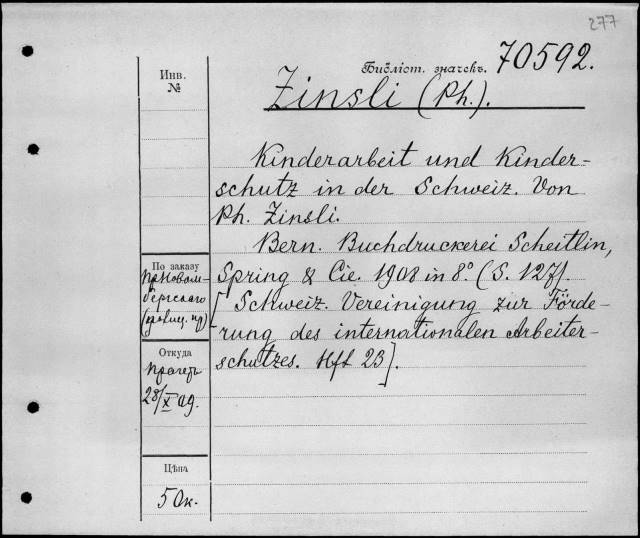 277
Библіот. значекъ. 70592.
Инв.
№
Zinsli (Ph.).
Kinderarbeit und Kinder-
schutz in der Schweiz. Von
Ph. Zinsli.
Bern. Buchdruckerei Scheitlin,
Spring & Cie. 1908 in 8° (S. 127).
[Schweiz. Vereinigung zur Förde-
rung des internationalen Arbeiter-
schutzes. Hft 23].
По заказу
Откуда
28/X 09.
Цѣна
50к.